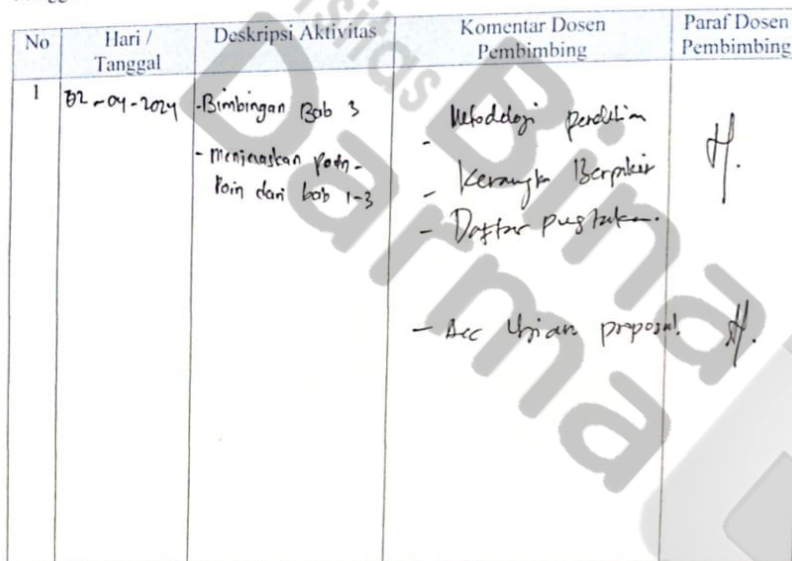 No
Hari /
Tanggal
Deskripsi Aktivitas
Komentar Dosen
Pembimbing
Paraf Dosen
Pembimbing
1
02-04-2024
-Bimbingan Bab 3
- Menjelaskan Poin-
Poin dari bab 1-3
- Metodologi penelitian
- Kerangka Berpikir
- Daftar pustaka.
- Acc Ujian proposal.
sitas
Bina
Darma